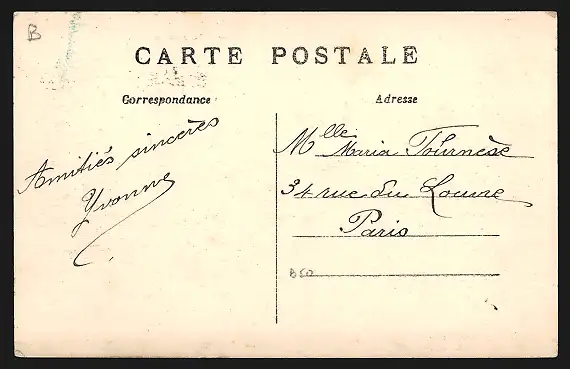 B
CARTE POSTALE
Correspondance
Adresse
Amitiés sincères
Yvonne
Mlle Maria Tournèse
34 rue du Louvre
Paris
B50